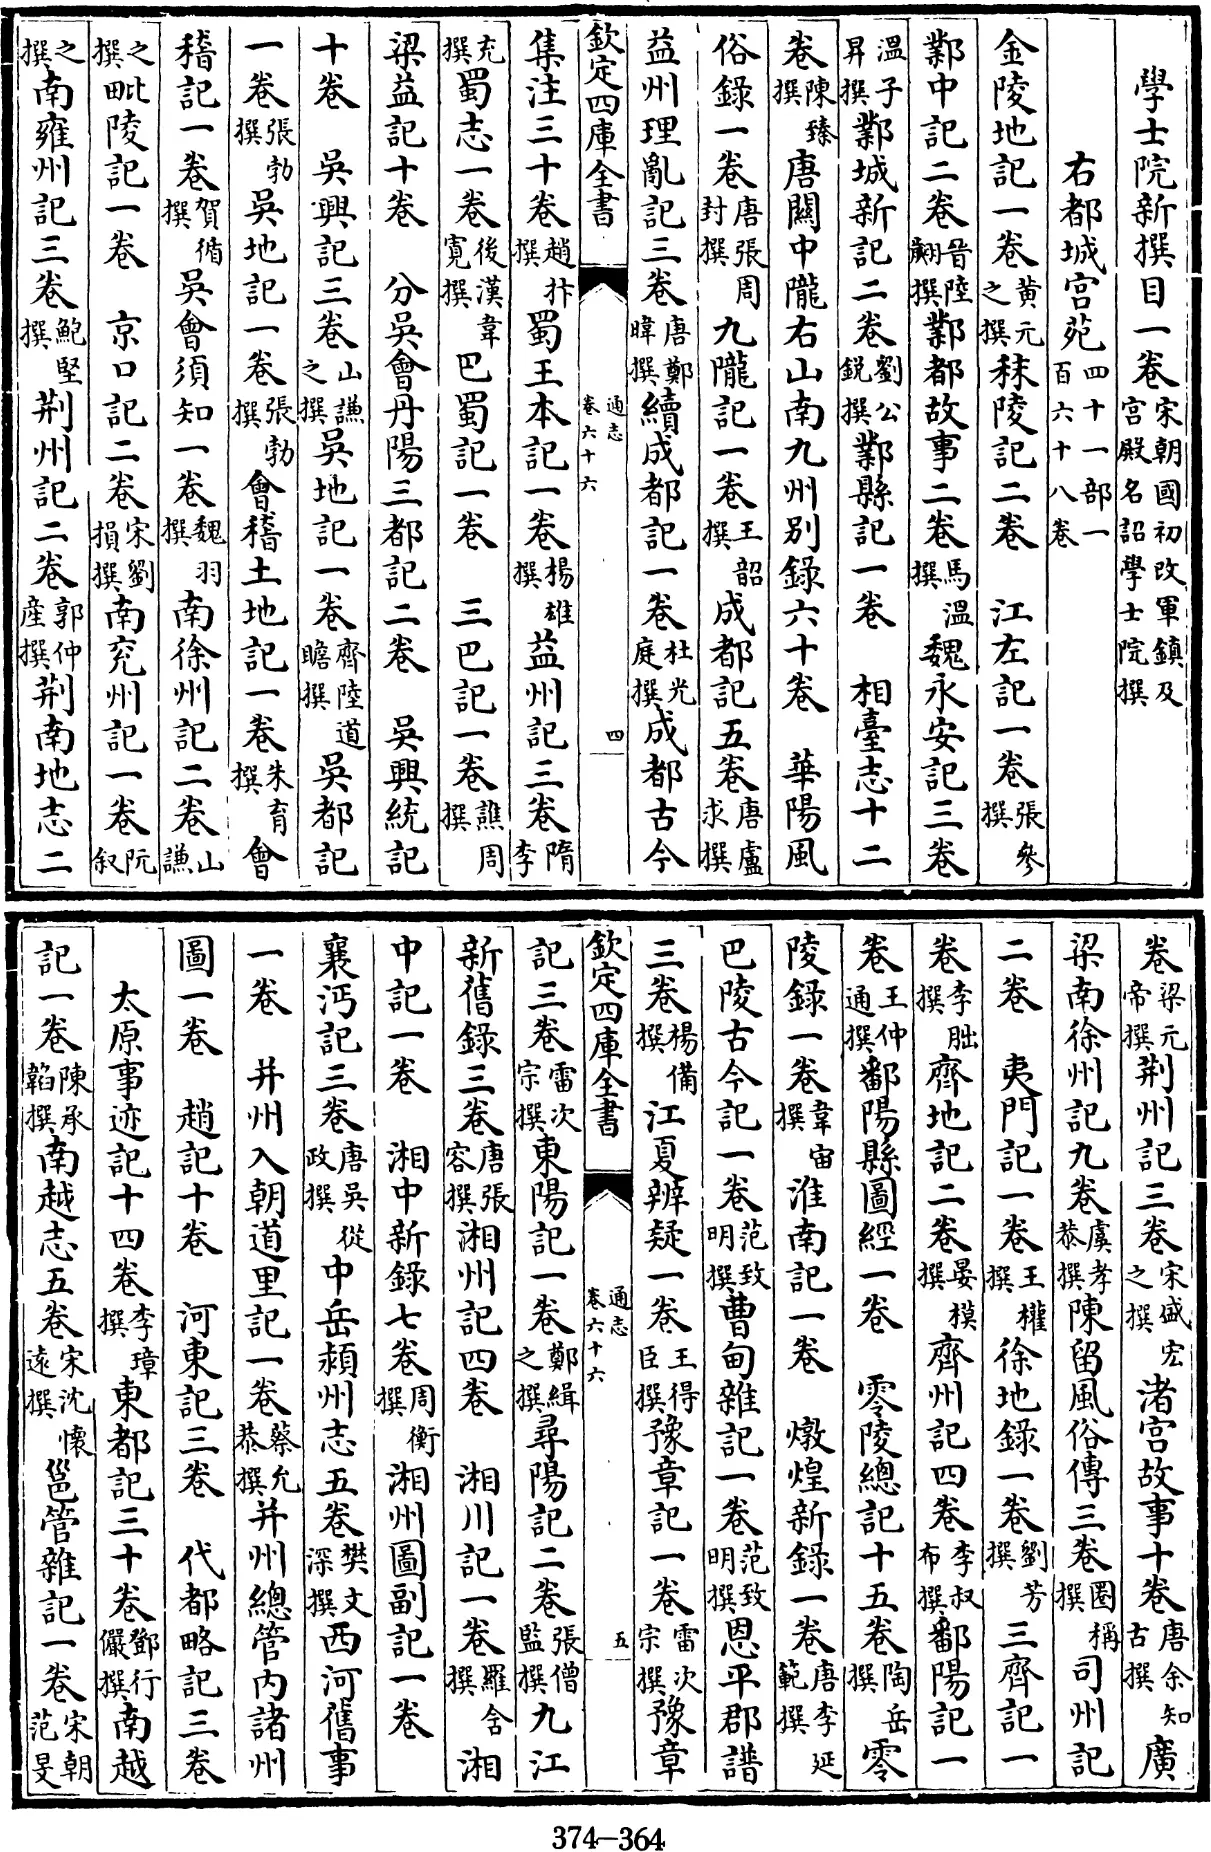 學士院新撰目一卷宋朝國初改軍鎮及宫殿名詔學士院撰
右都城宫苑四十一部一百六十八卷
金陵地記一卷黄元之撰秣陵記二卷　江左記一卷張參撰
鄴中記二卷晉陸翽撰鄴都故事二卷馬溫撰魏永安記三卷
溫子昇撰鄴城新記二卷劉公鋭撰鄴縣記一卷　相臺志十二
卷陳臻撰唐關中隴右山南九州别錄六十卷　華陽風
俗錄一卷唐張周封撰九隴記一卷王韶撰成都記五卷唐盧求撰
益州理亂記三卷唐鄭暐撰續成都記一卷杜光庭撰成都古今
欽定四庫全書　通志卷六十六　四
集注三十卷趙抃撰蜀王本記一卷楊雄撰益州記三卷隋李
充撰蜀志一卷後漢韋寛撰巴蜀記一卷　三巴記一卷譙周撰
梁益記十卷　分吳會丹陽三都記二卷　吳興統記
十卷　吳興記三卷山謙之撰吳地記一卷齊陸道瞻撰吳都記
一卷張勃撰吳地記一卷張勃撰會稽土地記一卷朱育撰會
稽記一卷賀循撰吳會須知一卷魏羽撰南徐州記二卷山謙
之撰毗陵記一卷　京口記二卷宋劉損撰南兖州記一卷阮叙
之撰南雍州記三卷鮑堅撰荆州記二卷郭仲産撰荆南地志二
卷梁元帝撰荆州記三卷宋盛宏之撰渚宫故事十卷唐余知古撰廣
梁南徐州記九卷虞孝恭撰陳留風俗傳三卷圏稱撰司州記
二卷　夷門記一卷王權撰徐地錄一卷劉芳撰三齊記一
卷李朏撰齊地記二卷晏模撰齊州記四卷李叔布撰鄱陽記一
卷王仲通撰鄱陽縣圖經一卷　零陵總記十五卷陶岳撰零
陵錄一卷韋宙撰淮南記一卷　燉煌新錄一卷唐李延範撰
巴陵古今記一卷范致明撰曹甸雜記一卷范致明撰恩平郡譜
三卷楊備撰江夏辨疑一卷王得臣撰豫章記一卷雷次宗撰豫章
欽定四庫全書　通志卷六十六　五
記三卷雷次宗撰東陽記一卷鄭緝之撰尋陽記二卷張僧監撰九江
新舊錄三卷唐張容撰湘州記四卷　湘川記一卷羅含撰湘
中記一卷　湘中新錄七卷周衡撰湘州圖副記一卷
襄沔記三卷唐吳從政撰中岳頴州志五卷樊文深撰西河舊事
一卷　并州入朝道里記一卷蔡允恭撰并州總管内諸州
圖一卷　趙記十卷　河東記三卷　代都略記三卷
太原事迹記十四卷李璋撰東都記三十卷鄧行儼撰南越
記一卷陳承韜撰南越志五卷宋沈懷遠撰邕管雜記一卷宋朝范旻
374-364